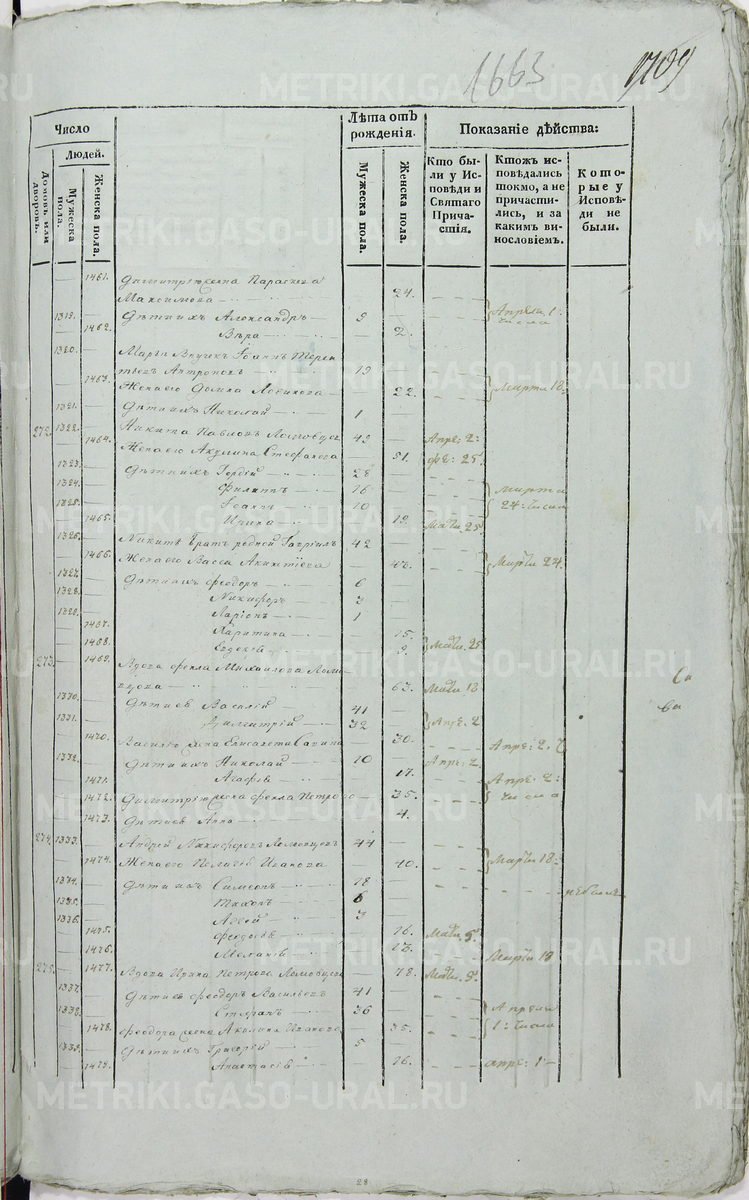 1663
1709
Число
Людей.
Домовъ или дворовъ.
Мужеска пола.
Женска пола.
Лѣта отъ рожденія.
Мужеска пола.
Женска пола.
Показаніе дѣйства:
Кто были у Исповѣди и Святаго Причастія.
Ктожъ исповѣдались токмо, а не причастились, и за какимъ винословіемъ.
Которые у Исповѣди не были.
1461. Димитрія жена Параскева
Максимова 24.
1319. Дѣти ихъ Александръ 9 Апрѣля 1:
1462. Вѣра 2. числа
1320. Марьи внукъ Іоаннъ Терен
тьевъ 19
1463. Жена его 22. Марта 18:
1321. Дѣти ихъ Николай 1
272. 1322. Никита Павловъ 49 Апре: 2:
1464. Жена его Акулина Стефанова 51. фе: 25.
1323. Дѣти ихъ 28
1324. Филиппъ 16 Марта
1325. Іоаннъ 10 24 числа
1465. Ирина 19. 25
1326. Никиты братъ родной Гавріилъ 42
1466. Жена его Васса 43. Марта 24.
1327. Дѣти ихъ Феодоръ 6
1328. Никифоръ 3
1329. Ларіонъ 1
1467. Харитина 15.
1468. Евдокія 9. 25
273. 1469. Вдова Фекла Михайлова
63. 18
1330. Дѣти ея Василій 41
1331. Димитрій 32 Апре. 2
1470. Василья жена Елисавета Савина 30. Апре: 2.
1332. Дѣти ихъ Николай 10 Апре: 2.
1471. Агафія 17. Апре: 2:
1472. Димитрія жена Фекла Петрова 35. числа
1473. Дѣти ея Анна 4.
274. 1333. Андрей Никифоровъ 44
1474. Жена его Пелагія Иванова 40. Марта 18:
1334. Дѣти ихъ Симеонъ 18 не былъ
1335. Тихонъ 6
1336. 3
1475. Феодосія 16. 5.
1476. Меланія 13. Марта 18
275. 1477. Вдова Ирина Петрова 78. 9.
1337. Дѣти ея Феодоръ Васильевъ 41
1338. Стефанъ 36 Апреля
1478. Феодора жена Акилина Иванова 35. 1: числа
1339. Дѣти ихъ Григорій 5
1479. Анастасія 16. апре: 1
28
METRIKI.GASO-URAL.RU